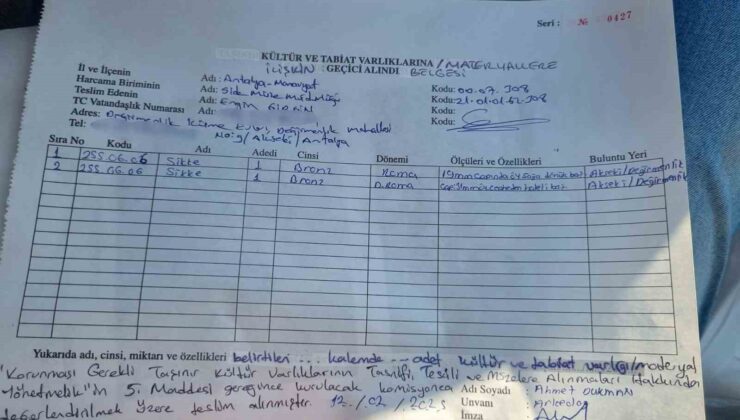 Seri : № 0427
KÜLTÜR VE TABİAT VARLIKLARINA / MATERYALLERE
İLİŞKİN GEÇİCİ ALINDI BELGESİ
İl ve İlçenin Adı: Antalya-Manavgat Kodu: 00.07.708
Harcama Biriminin Adı: Side Müze Müdürlüğü Kodu: 21.01.01.62.708
Teslim Edenin Adı: Engin Kodu:
TC Vatandaşlık Numarası Adı: Kodu:
Adres: Değirmenlik Küme Evler Değirmenlik mahallesi
Tel: No: 9/Akseki/Antalya
Sıra No Kodu Adı Adedi Cinsi Dönemi Ölçüleri ve Özellikleri Buluntu Yeri
1 255.06.06 Sikke 1 Bronz Roma 19mm çapında öy sağa dönük baş Akseki/Değirmenlik
2 255.06.06 Sikke 1 Bronz D.Roma Akseki/Değirmenlik
Yukarıda adı, cinsi, miktarı ve özellikleri belirtilen ... kalemde ... adet kültür ve tabiat varlığı/materyal
"Korunması Gerekli Taşınır Kültür Varlıklarının Tasnifi, Tescili ve Müzelere Alınmaları Hakkında
Yönetmelik"in 5. Maddesi gereğince kurulacak komisyonca Adı Soyadı Ahmet
değerlendirilmek üzere teslim alınmıştır 12./02./2025 Unvanı Arkeolog
İmza